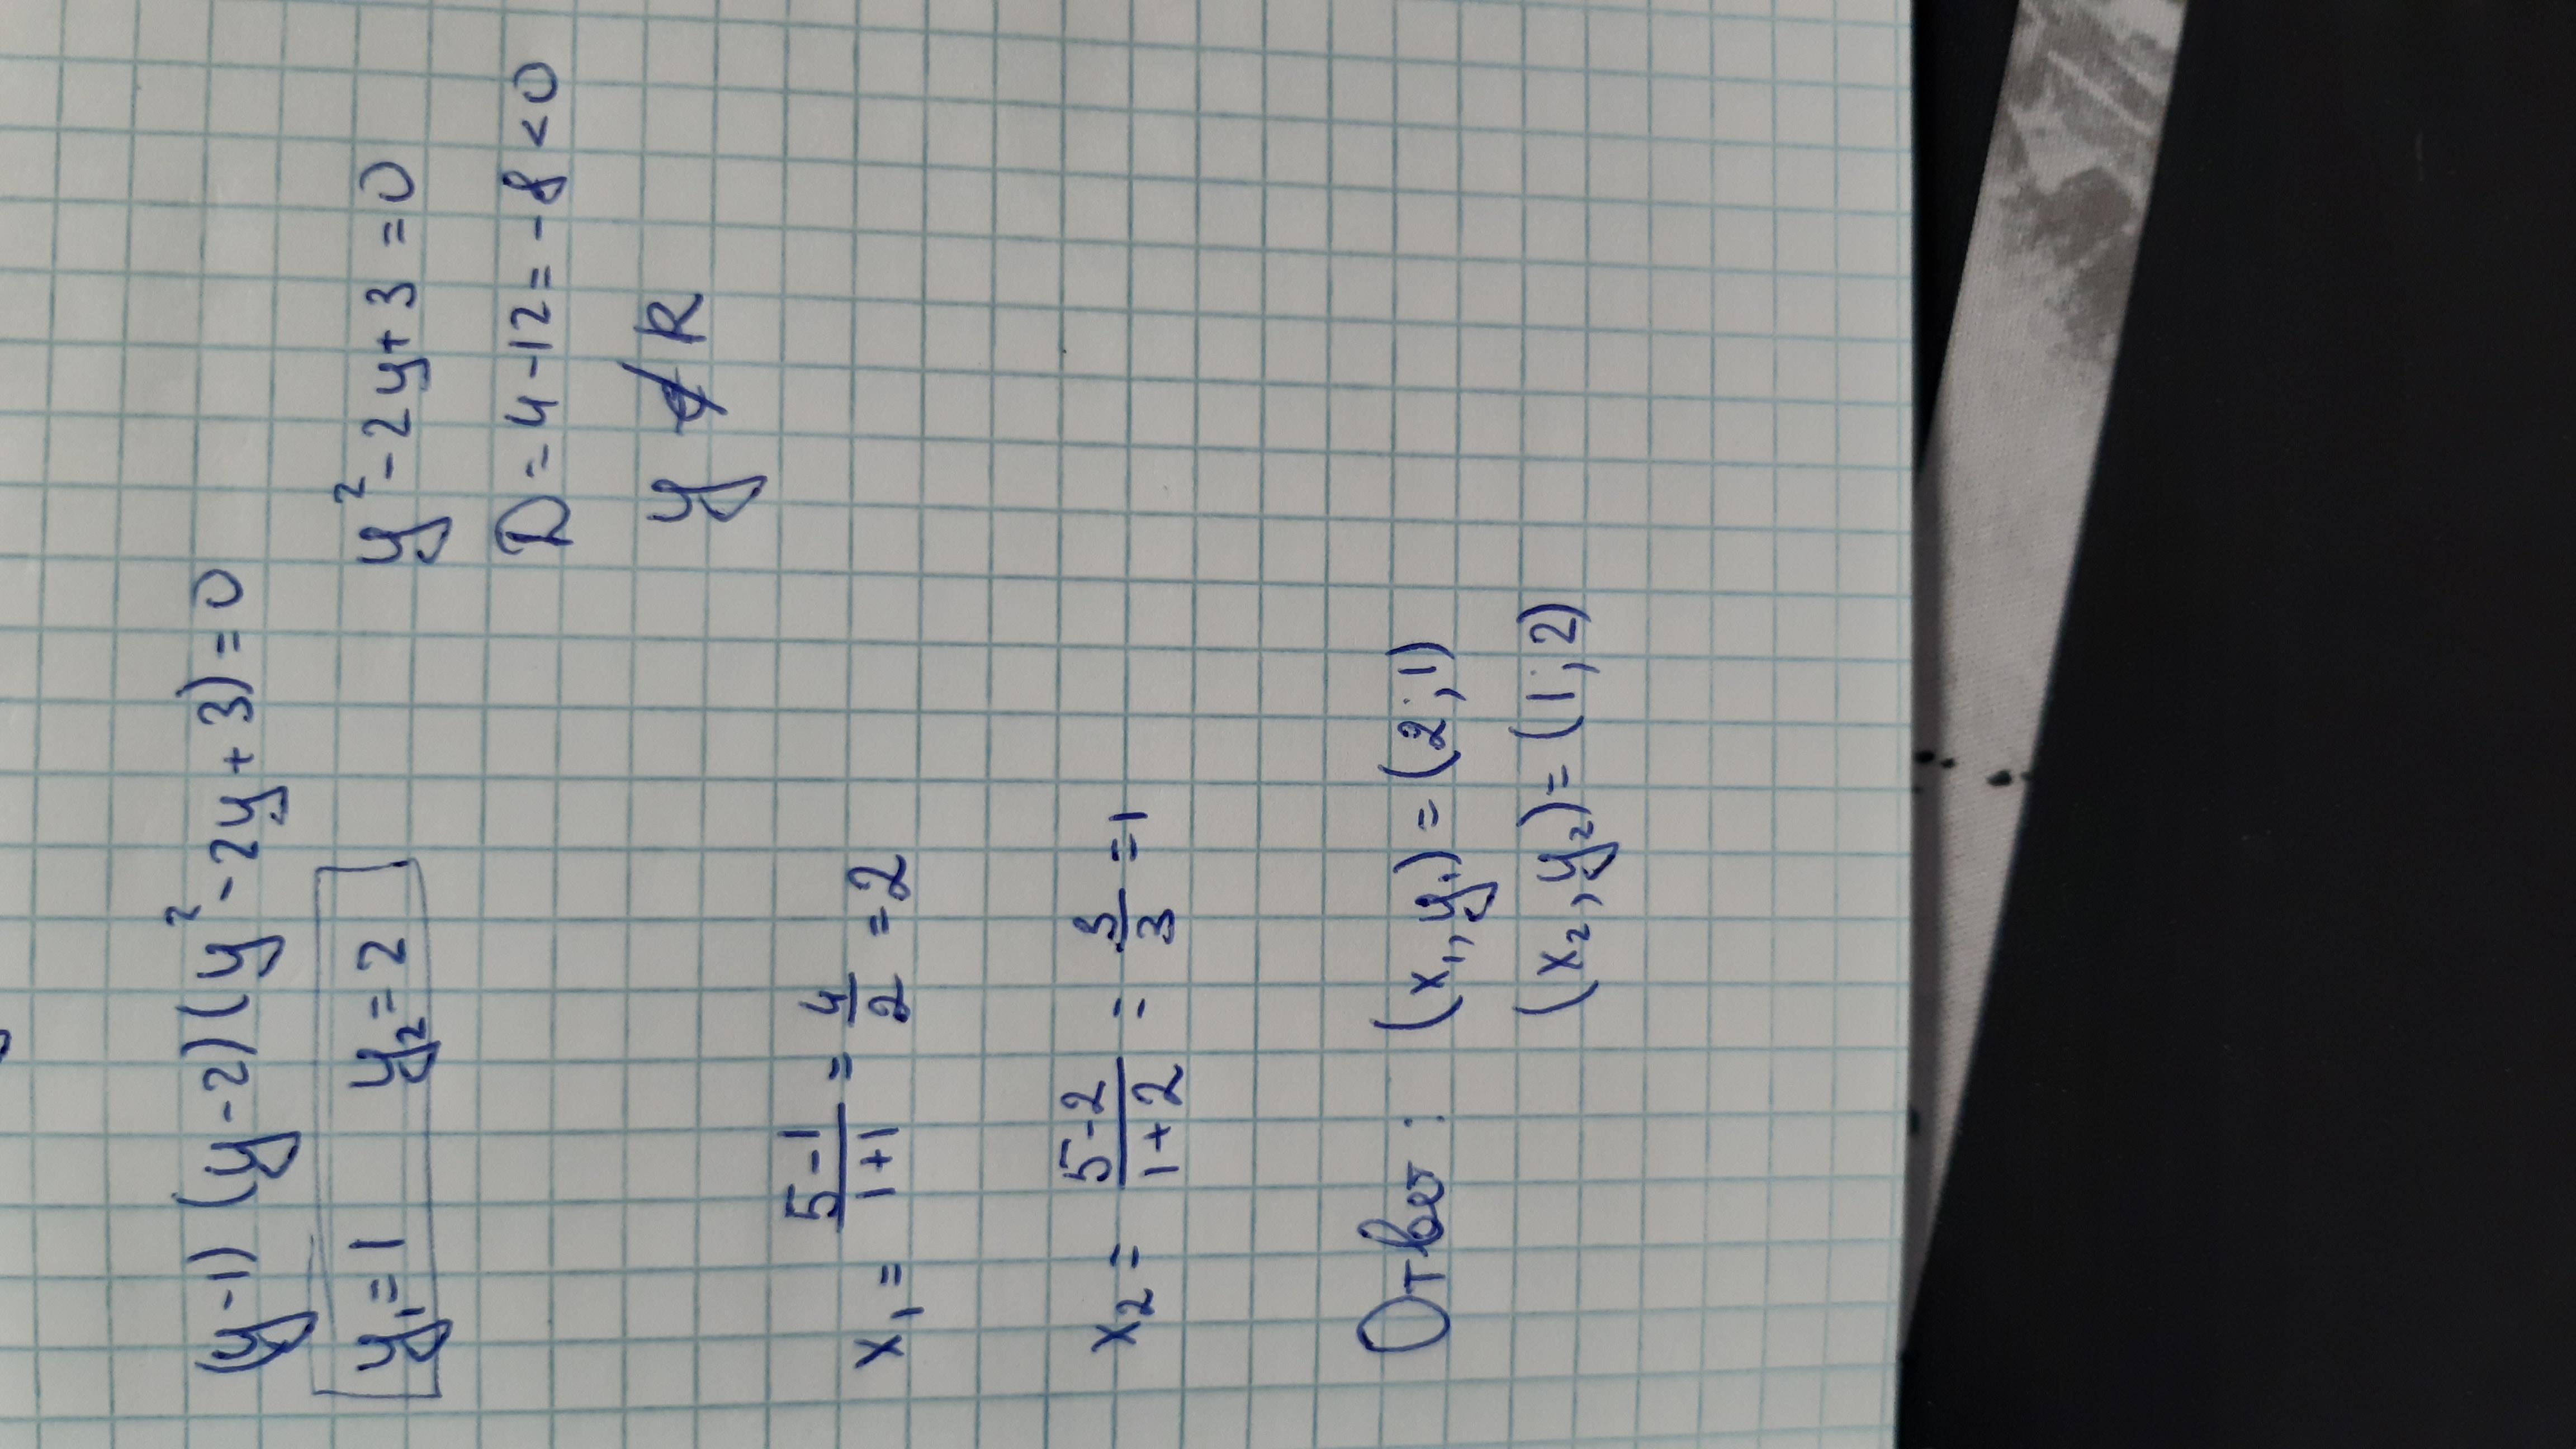 (y-1)(y-2)(y²-2y+3)=0
y₁=1 y₂=2
y²-2y+3=0
D=4-12=-8<0
y∉R
x₁= 5-1/1+1 = 4/2 =2
x₂= 5-2/1+2 = 3/3 =1
Ответ: (x₁,y₁)=(2;1)
(x₂,y₂)=(1;2)